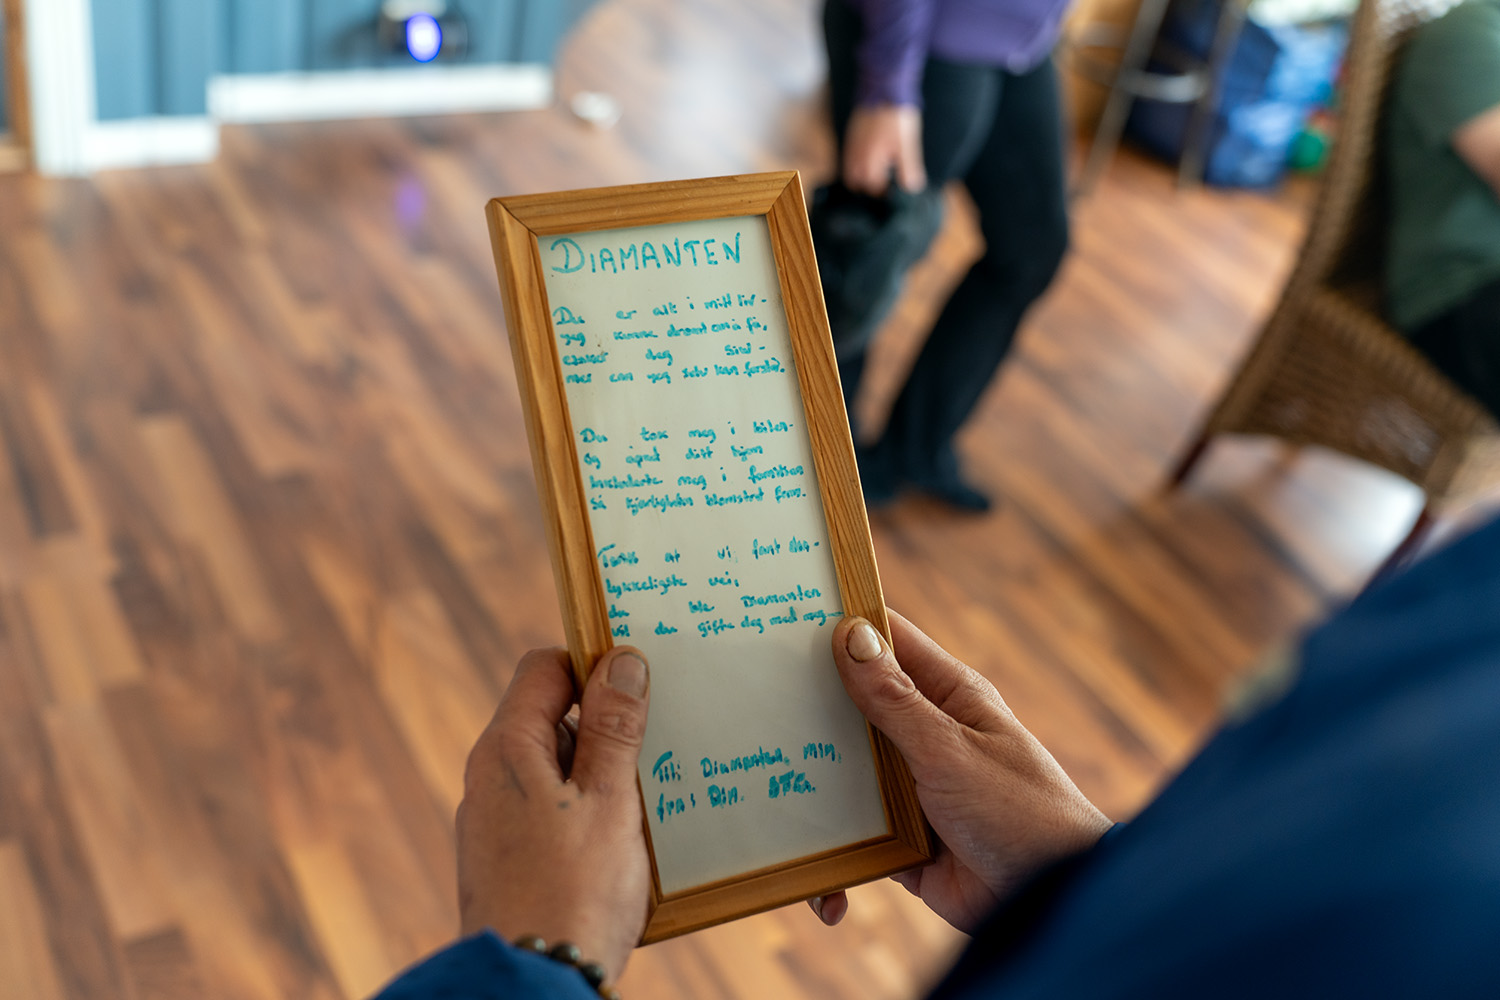 DIAMANTEN
Du er alt i mitt liv-
jeg kunne drømt om å få,
elsker deg
mer enn jeg selv kan forstå.
Du tok meg i bilen-
og åpnet ditt hjem
Inkluderte meg i familien
Så kjærligheten blomstret frem.
Tenk at vi fant den-
lykkeligste vei,
du ble Diamanten
vil du gifte deg med meg-
Til: Diamanten, Min,
fra: Din.